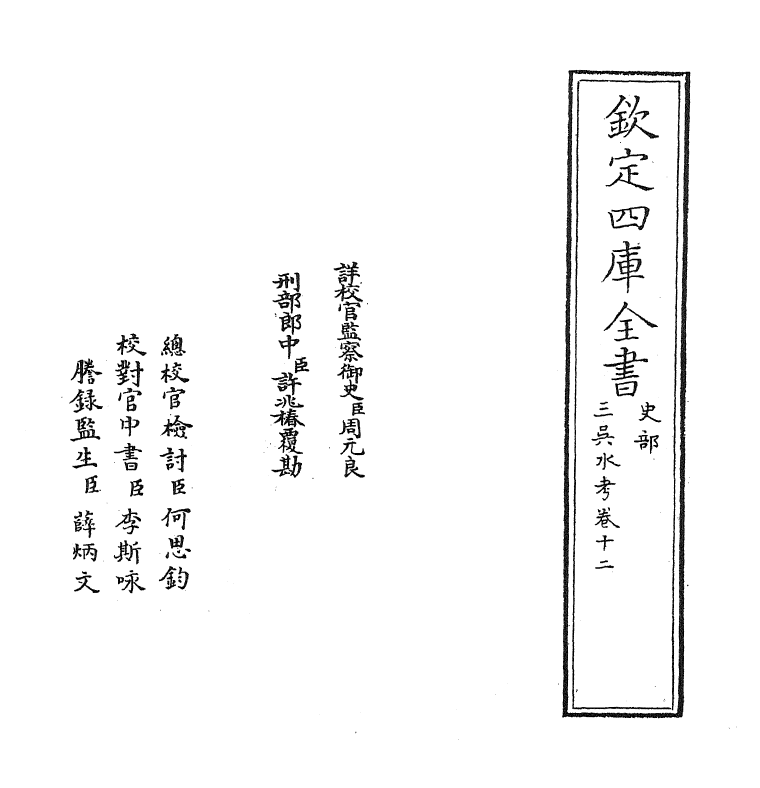 欽定四庫全書
史部
三吳水考卷十二
詳校官監察御史臣周元良
刑部郎中臣許兆椿覆勘
總校官檢討臣何思鈞
校對官中書臣李斯咏
謄錄監生臣薛炳文